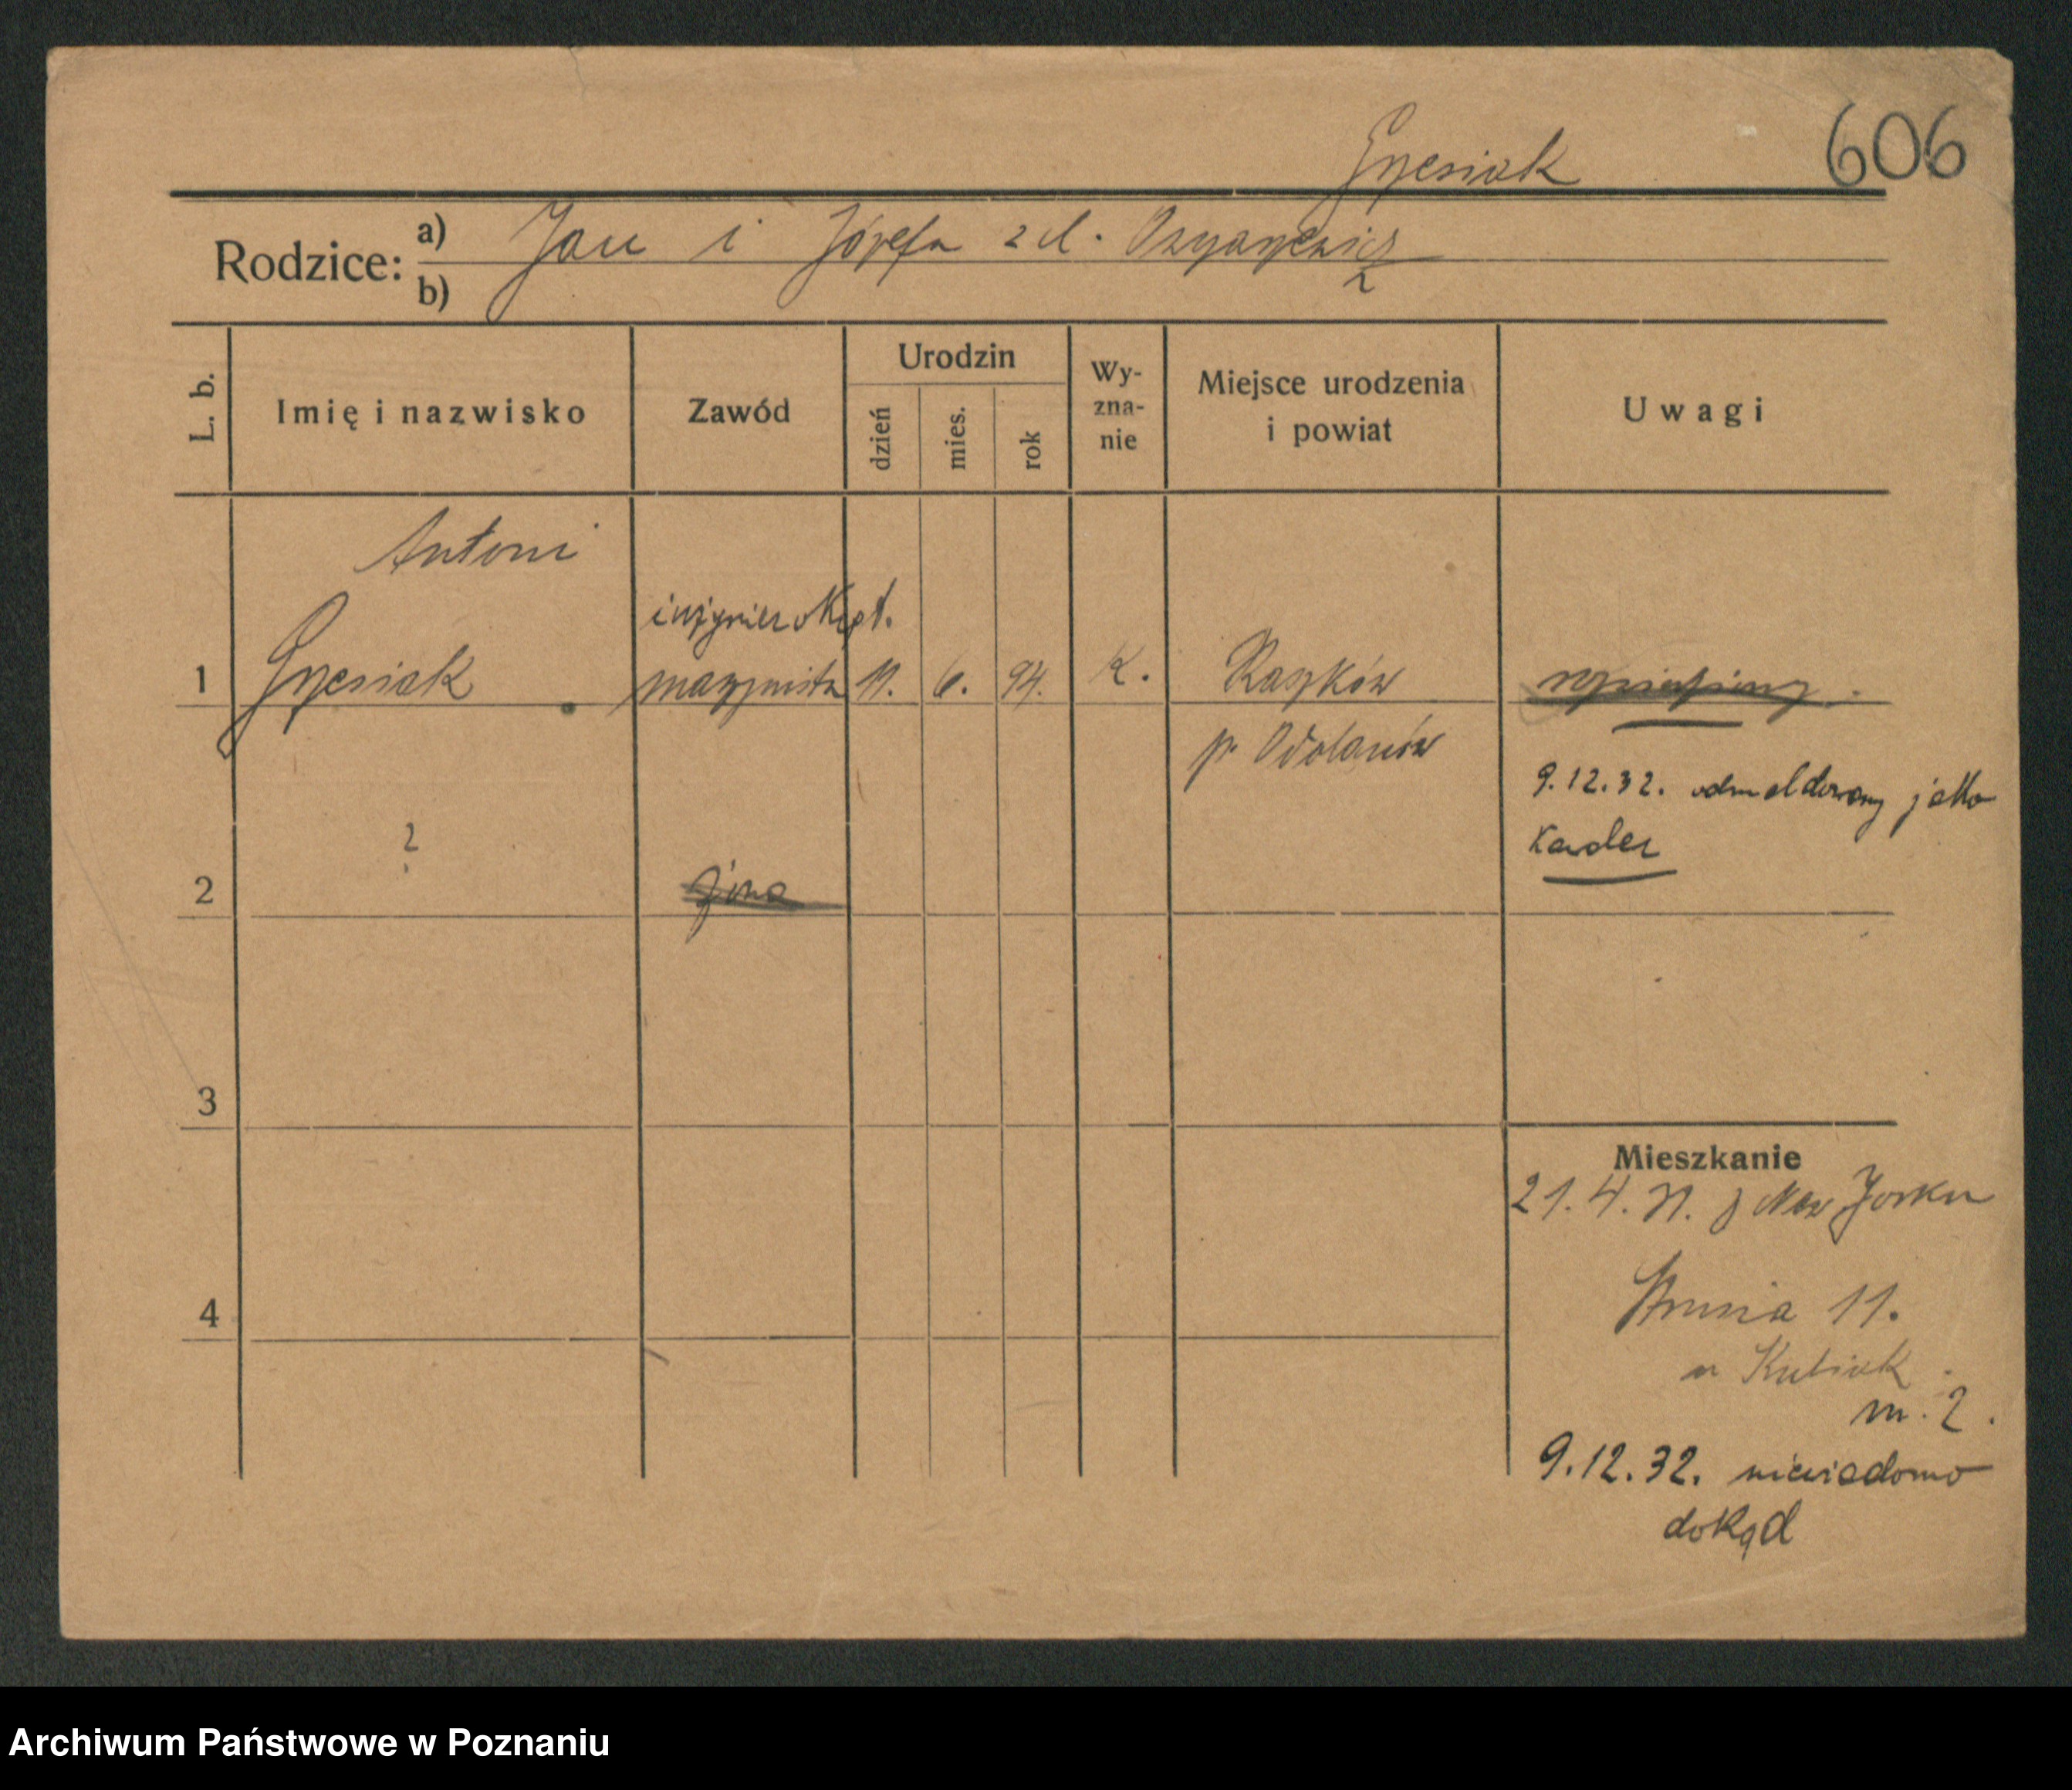 Grzesiak
606
Rodzice:
a) Jan i Józefa z d.
b)
L. b.
Imię i nazwisko
Zawód
Urodzin
dzień
mies.
rok
Wy-
zna-
nie
Miejsce urodzenia
i powiat
Uwagi
Antoni
inżynier okręt.
1 Grzesiak maszynista 11. 6. 94. k. Raszków
p. Odolanów
9.12.32. odmeldowany jako
Kawaler
?
2 żona
3
4
Mieszkanie
21.4.31. z New Jorku
Strusia 11.
u Kubiak
m. 2.
9.12.32. niewiadomo
dokąd
Archiwum Państwowe w Poznaniu